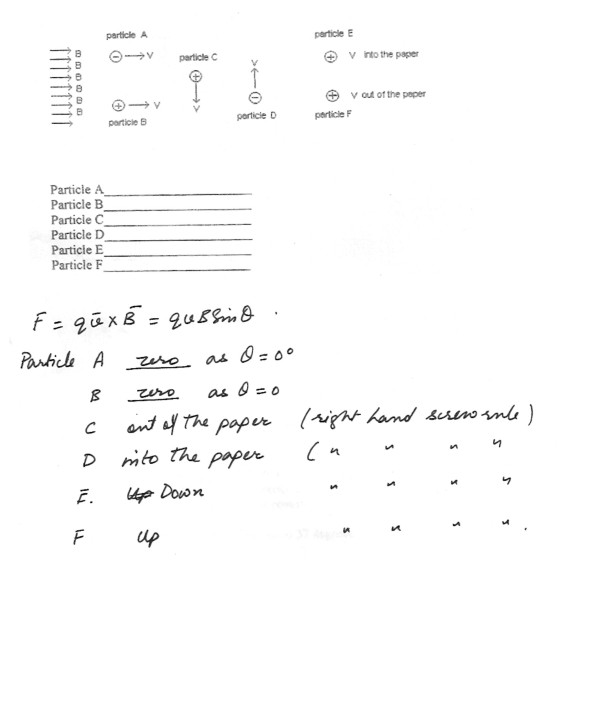 particle A
particle E
B
B
B
B
B
B
⊖ → V
particle C
V
⊕ V into the paper
⊕
⊕ → V
V
⊖
⊕ V out of the paper
particle B
particle D
particle F
Particle A
Particle B
Particle C
Particle D
Particle E
Particle F
F = qv̄ × B̄ = qvB Sin θ .
Particle A zero as θ = 0°
B zero as θ = 0
C out of the paper (right hand screw rule)
D into the paper ( " " " "
E. Up Down " " " "
F Up " " " " .